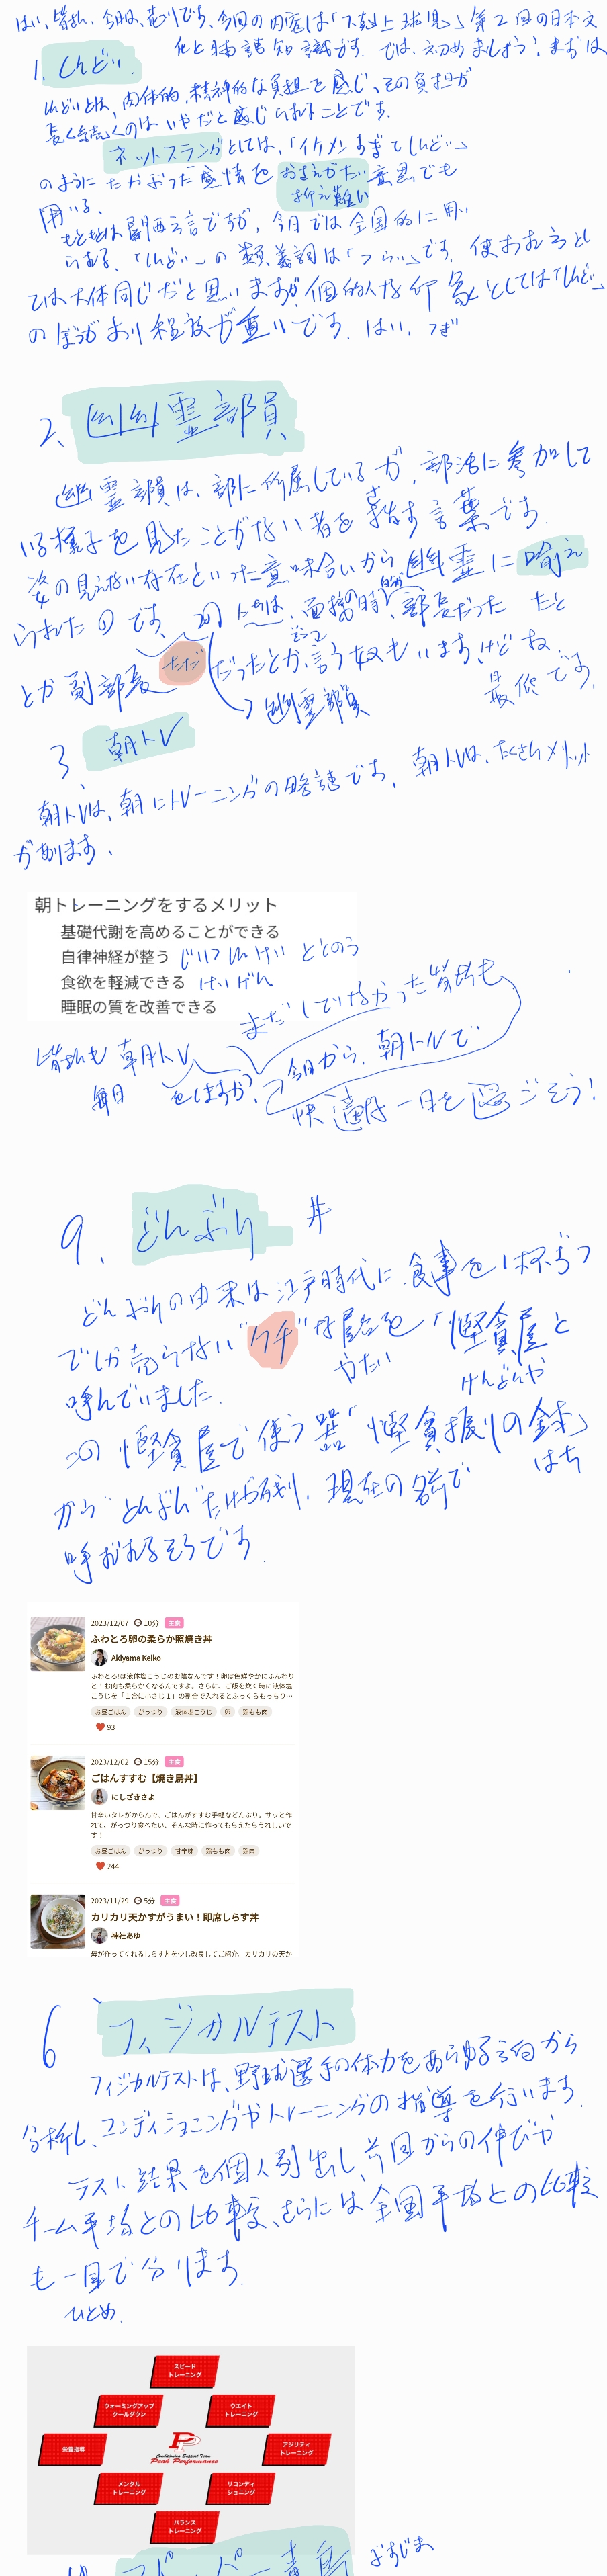 はい、皆さん、今日は、荒川です、今回の内容は「下剋上球児」第2回の日本文
化と単語知識です. では、初めましょう! まずは
1. しんどい.
しんどいとは、肉体的、精神的な負担を感じ、その負担が
長く続くのはいやだと感じられることです.
ネットスラングとしては、「イケメンすぎてしんどい」
のようにたかぶった感情をおさえがたい意思でも
抑え難い
用いる.
もともとは関西方言ですが、今日では全国的に用い
られる.「しんどい」の類義語は「つらい」です.
では大体同じだと思いますが、個人的な印象としては「しんどい」
のほうがより程度が重いです. はい、つぎ
2、幽霊部員
幽霊部員は、部に所属しているが、部活に参加して
いる様子を見たことがない者を指す言葉です.
さ
姿の見えない存在といった意味合いから、幽霊に喩え
られたのです、面接の時、部長だった
とか副部長だったとか言う奴もいますけどね
幽霊部員
最低です.
3、朝トレ
朝トレは、朝にトレーニングの略語です、朝トレは、たくさんメリット
があります.
朝トレーニングをするメリット
基礎代謝を高めることができる
自律神経が整う じりつしんけい ととのう
食欲を軽減できる けいげん
睡眠の質を改善できる
まだしていなかった皆さんも
皆さんも 朝トレ
今日から、朝トレで
毎日
をしますか?
快適な一日を過ごそう!
9. どんぶり 丼
どんぶりの由来は江戸時代に、食事を1杯ずつ
でしか売らない“ケチ”な屋台を「慳貪屋と
やたい
けんどんや
呼んでいました.
この慳貪屋で使う器「慳貪振りの鉢」
はち
から“どんぶり”だけが残り、現在の名前で
呼ばれるそうです.
2023/12/07 10分 主食
ふわとろ卵の柔らか照焼き丼
Akiyama Keiko
ふわとろ!は液体塩こうじのお墨なんです!卵は色鮮やかにふんわり
と!お肉も柔らかくなるんですよ。さらに、ご飯を炊く時に液体塩
こうじを「1合に小さじ1」の割合で入れるとふっくらもっちり…
お昼ごはん がっつり 液体塩こうじ 卵 鶏もも肉
93
2023/12/02 15分 主食
ごはんすすむ【焼き鳥丼】
にしざきさよ
甘辛いタレがからんで、ごはんがすすむ手軽などんぶり。サッと作
れて、がっつり食べたい、そんな時に作ってもらえたらうれしいで
す!
お昼ごはん がっつり 甘辛味 鶏もも肉 鶏肉
244
2023/11/29 5分 主食
カリカリ天かすがうまい!即席しらす丼
神社あゆ
母が作ってくれるしらす丼を少し改良してご紹介。カリカリの天か
6、フィジカルテスト
フィジカルテストは、野球選手の体力をあらゆる方向から
分析し、コンディショニングやトレーニングの指導を行います.
テスト結果を個人別出し、前回からの伸びや
チーム平均との比較、さらには全国平均との比較
も一目で分ります.
ひとめ.
スピード
トレーニング
ウォーミングアップ
クールダウン
ウエイト
トレーニング
栄養指導
Conditioning Support Team
Peak Performance
アジリティ
トレーニング
メンタル
トレーニング
リコンディ
ショニング
バランス
トレーニング